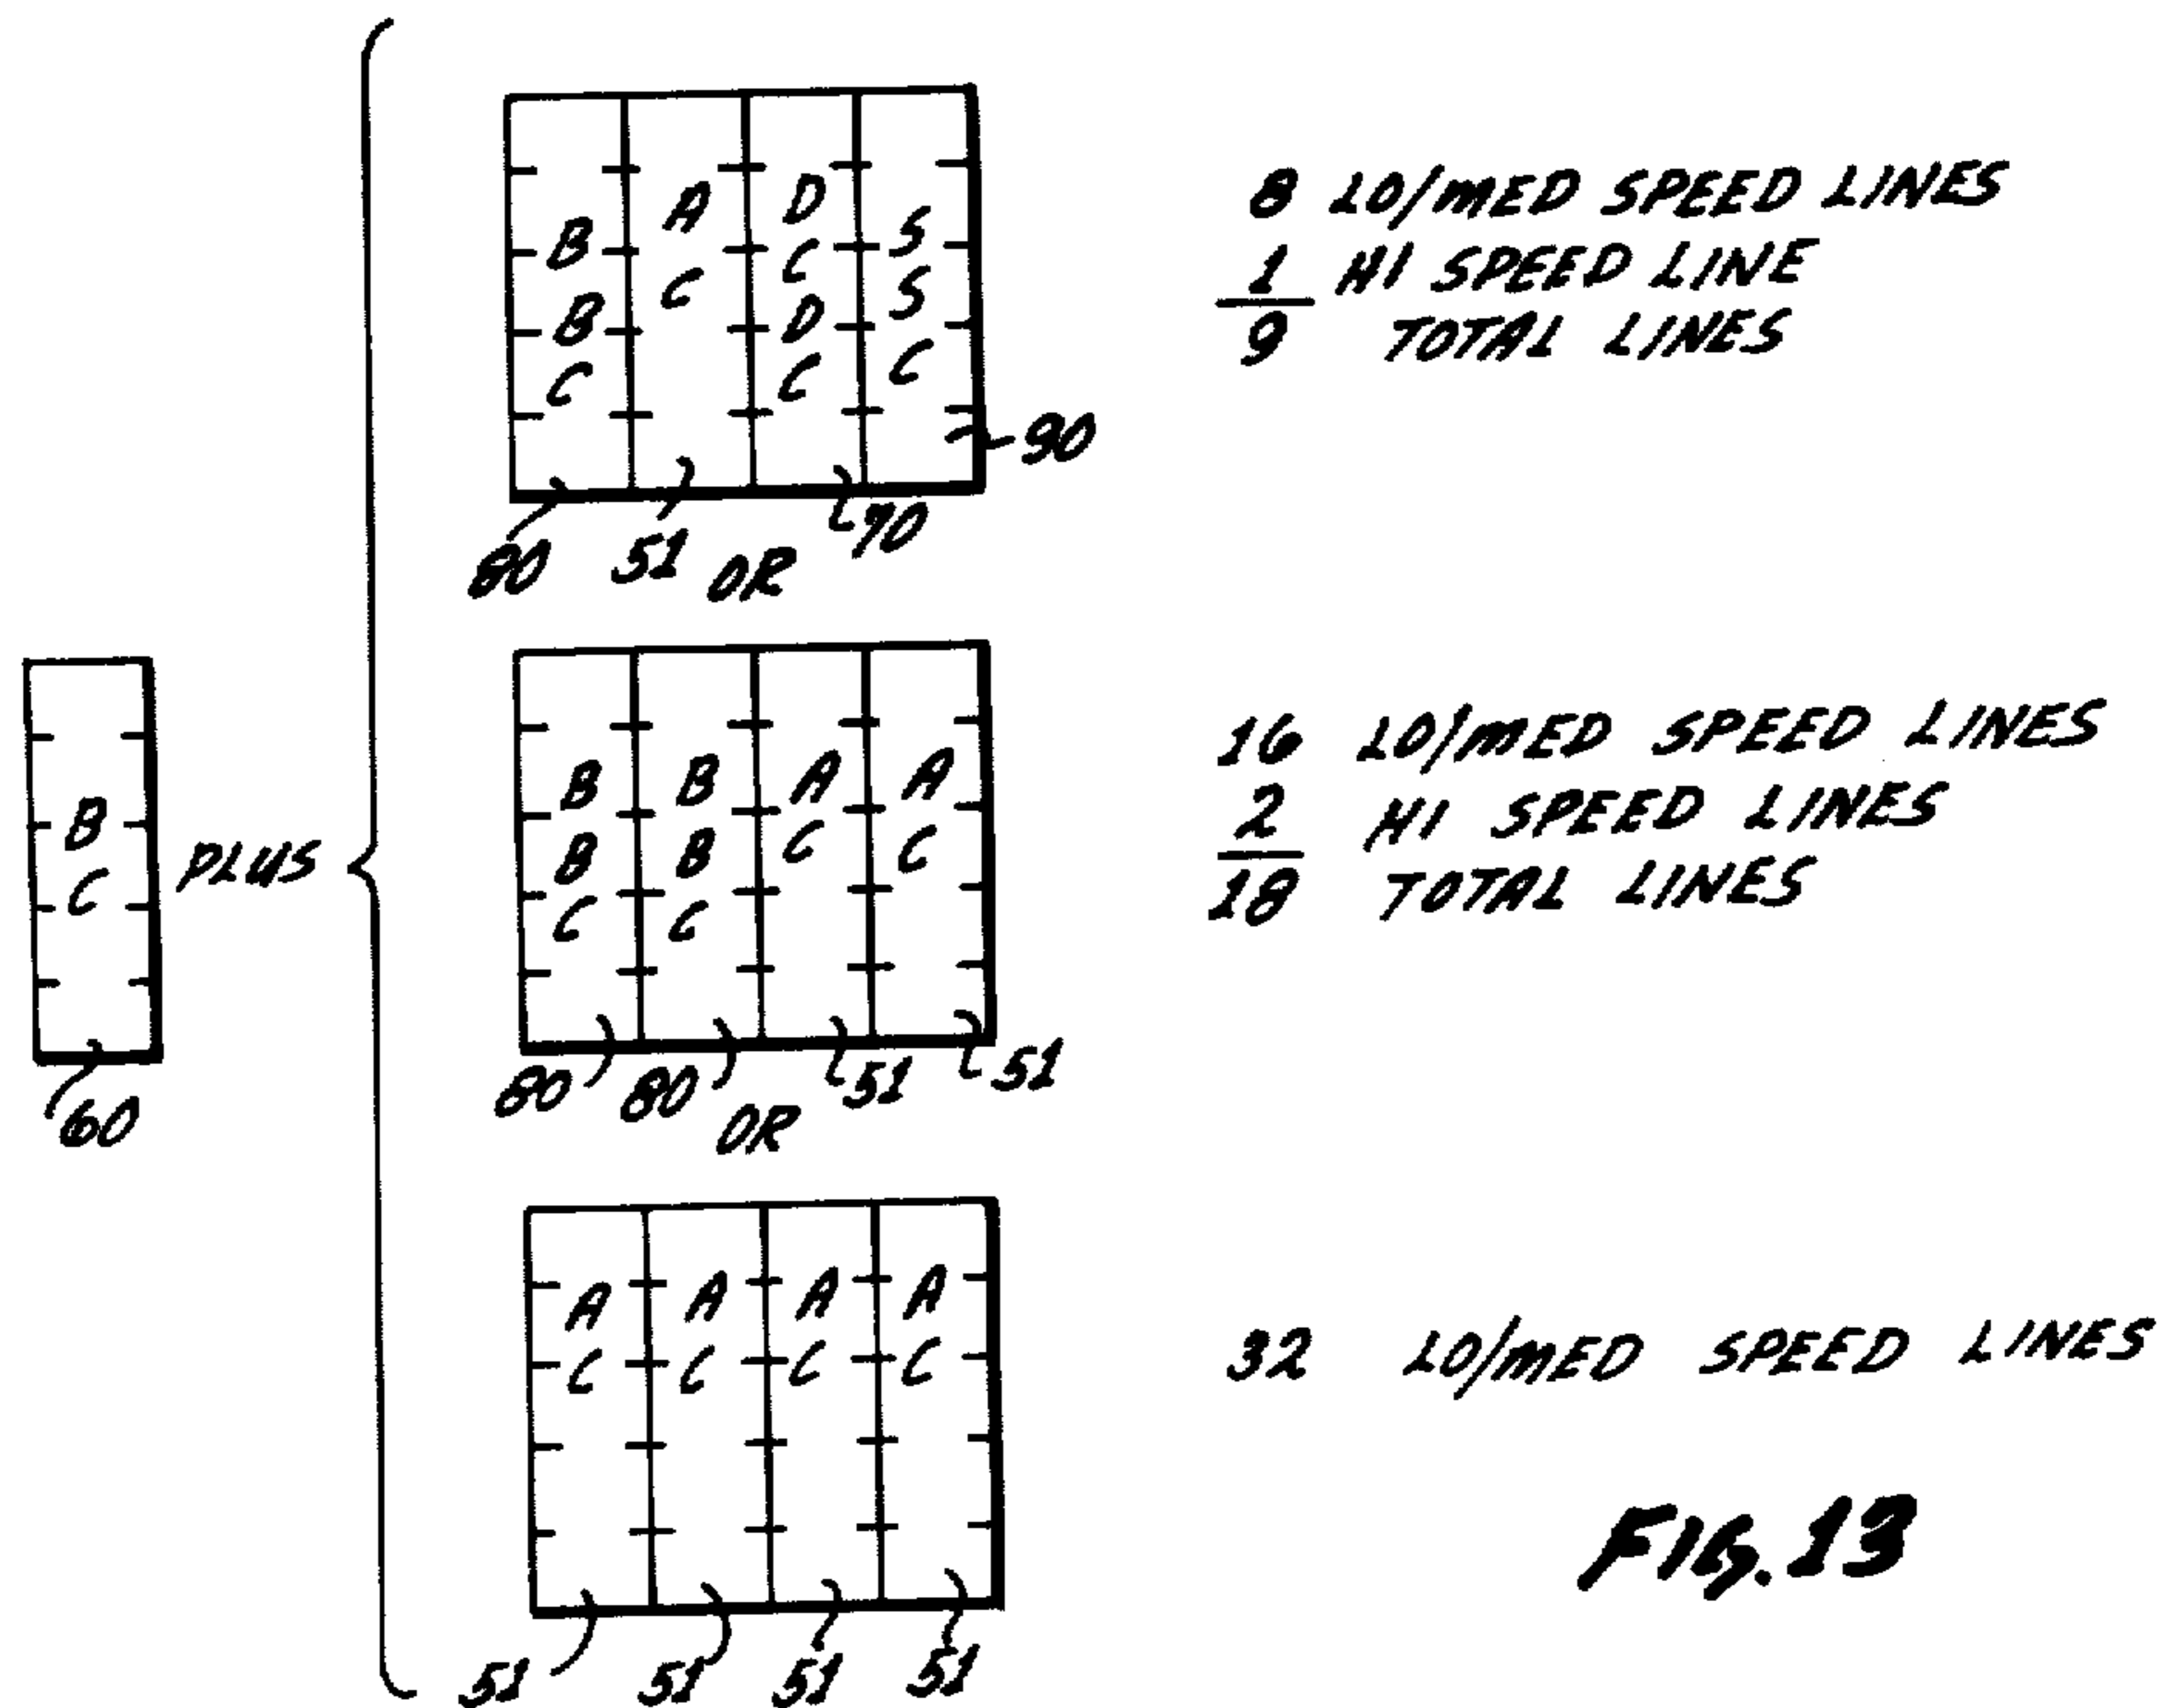 B
C
60
PLUS
B
B
C
A
C
D
C
D
C
S
S
C
90
80 51 OR 70
8 LO/MED SPEED LINES
1 HI SPEED LINE
9 TOTAL LINES
B
B
C
B
B
C
A
C
A
C
80 80 OR 51 51
16 LO/MED SPEED LINES
2 HI SPEED LINES
18 TOTAL LINES
A
C
A
C
A
C
A
C
51 51 51 51
32 LO/MED SPEED LINES
FIG. 13